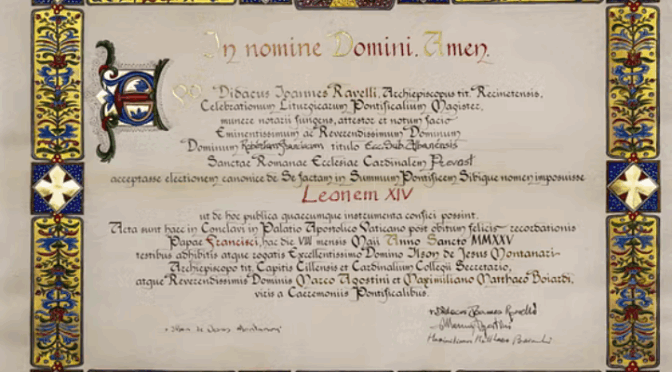 In nomine Domini. Amen.
Ego
Didacus Ioannes Ravelli, Archiepiscopus tit. Recinetensis,
Celebrationum Liturgicarum Pontificalium Magister,
munere notarii fungens, attestor et notum facio
Eminentissimum ac Reverendissimum Dominum
Dominum Robertum Franciscum titulo Ecc. Sub. Albanensis
Sanctae Romanae Ecclesiae Cardinalem Prevost
acceptasse electionem canonice de Se factam in Summum Pontificem Sibique nomen imposuisse
Leonem XIV
ut de hoc publica quaecumque instrumenta confici possint.
Acta sunt haec in Conclavi in Palatio Apostolico Vaticano post obitum felicis recordationis
Papae Francisci, hac die VIII mensis Maii Anno Sancto MMXXV
testibus adhibitis atque rogatis Excellentissimo Domino Ilson de Jesus Montanari
Archiepiscopo tit. Capitis Cillensis et Cardinalium Collegii Secretario,
atque Reverendissimis Dominis Marco Agostini et Maximiliano Matthaeo Boiardi,
viris a Caeremoniis Pontificalibus.